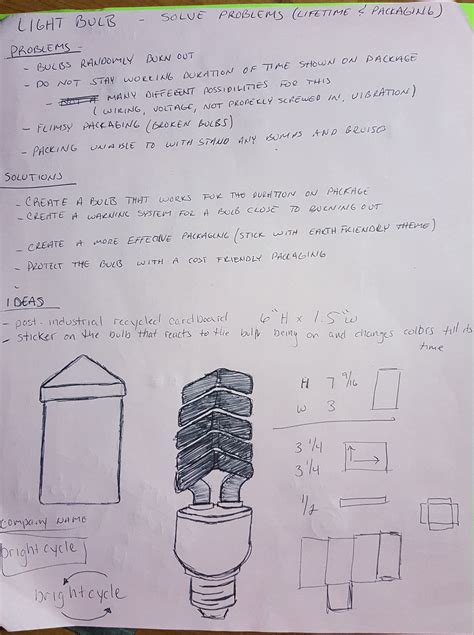 LIGHT BULB - SOLVE PROBLEMS (LIFETIME & PACKAGING)
PROBLEMS -
- BULBS RANDOMLY BURN OUT
- DO NOT STAY WORKING DURATION OF TIME SHOWN ON PACKAGE
- MANY DIFFERENT POSSIBILITIES FOR THIS
(WIRING, VOLTAGE, NOT PROPERLY SCREWED IN, VIBRATION)
- FLIMSY PACKAGING (BROKEN BULBS)
- PACKING UNABLE TO WITH STAND ANY BUMPS AND BRUISES
SOLUTIONS
- CREATE A BULB THAT WORKS FOR THE DURATION ON PACKAGE
- CREATE A WARNING SYSTEM FOR A BULB CLOSE TO BURNING OUT
- CREATE A MORE EFFECTIVE PACKAGING (STICK WITH EARTH FRIENDLY THEME)
- PROTECT THE BULB WITH A COST FRIENDLY PACKAGING
IDEAS
- post-industrial recycled cardboard 6"H x 1.5"W
- sticker on the bulb that reacts to the bulb being on and changes colors till its
time
H 7 9/16
W 3
3 1/4
3 1/4
1/2
COMPANY NAME
brightcycle
brightcycle